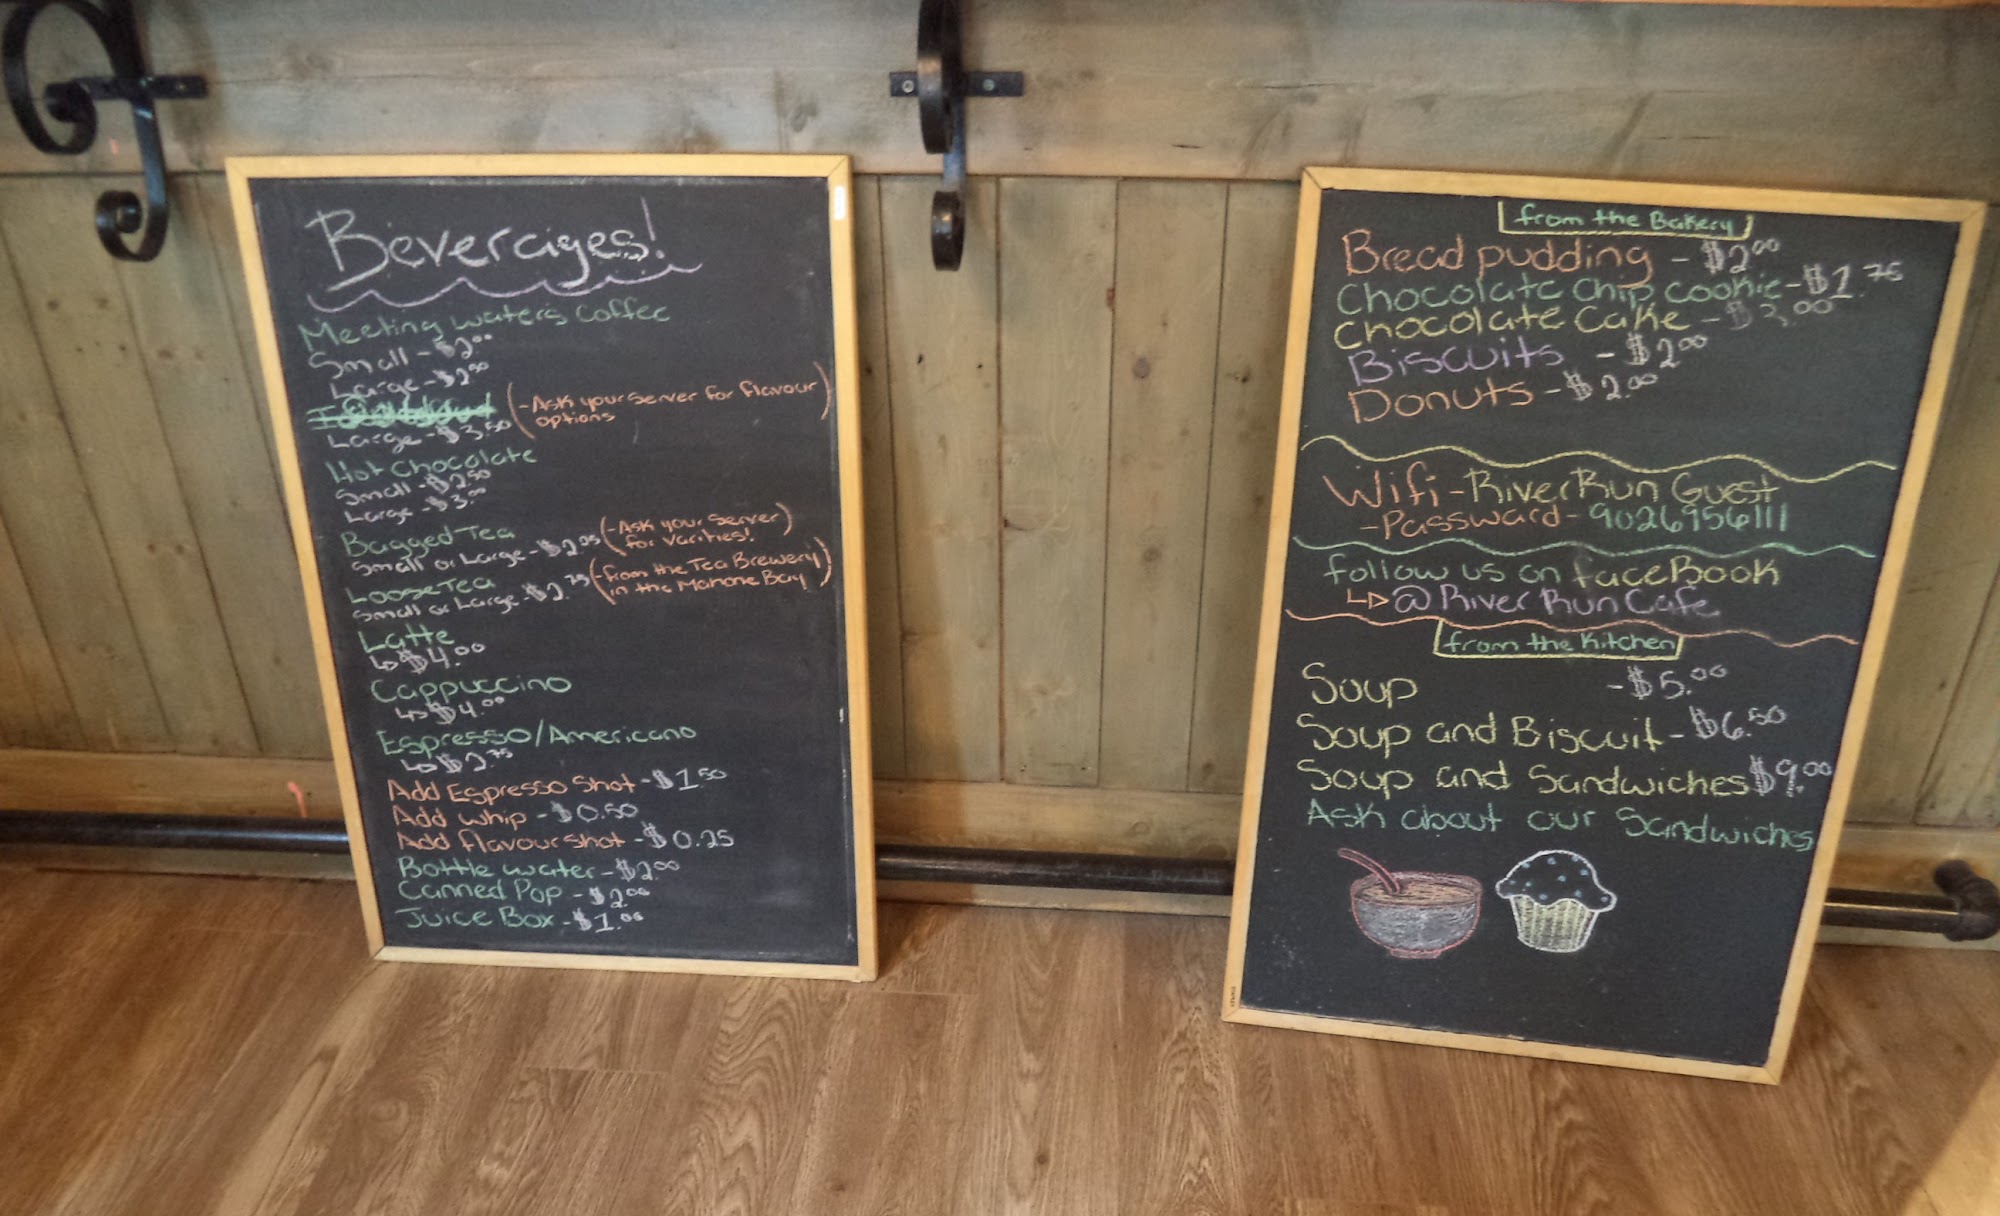 Beverages!
Meeting waters coffee
Small - $2.00
Large - $2.50
Large - $3.50 (-Ask your server for flavour
options)
Hot Chocolate
Small - $2.50
Large - $3.00
Bagged Tea
Small or Large - $2.25 (-Ask your server
for varities!)
Loose Tea
Small or Large - $2.75 (-from the Tea Brewery
in the Mahone Bay)
Latte
↳ $4.00
Cappuccino
↳ $4.00
Espresso/Americano
↳ $2.75
Add Espresso Shot - $1.50
Add whip - $0.50
Add flavour shot - $0.25
Bottle water - $2.00
Canned Pop - $2.00
Juice Box - $1.00
from the Bakery
Bread pudding - $2.00
Chocolate chip cookie - $1.75
Chocolate Cake - $3.00
Biscuits - $2.00
Donuts - $2.00
Wifi - RiverRun Guest
- Password - 9026956111
follow us on faceBook
↳ @RiverRunCafe
from the Kitchen
Soup - $5.00
Soup and Biscuit - $6.50
Soup and Sandwiches $9.00
Ask about our Sandwiches